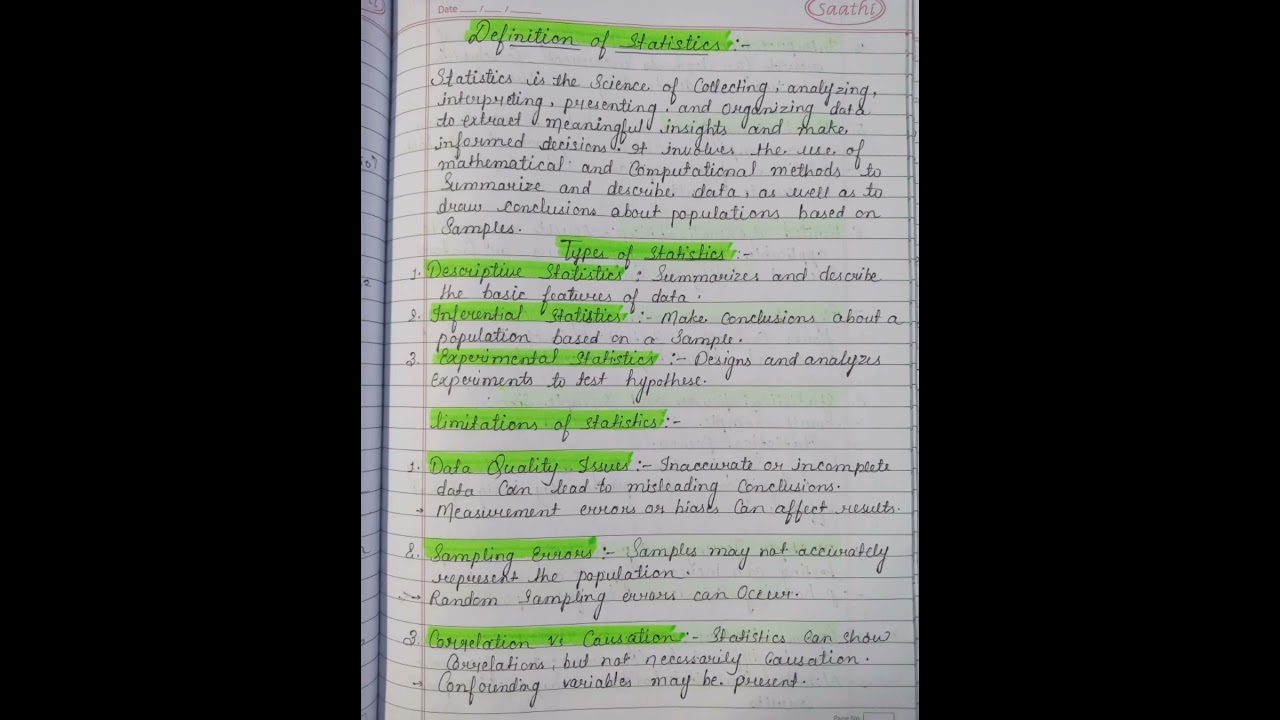 Date __/__/____
Saathi
Definition of Statistics :-
Statistics is the Science of Collecting, analyzing,
interpreting, presenting, and organizing data
to extract meaningful insights and make
informed decisions. It involves the use of
mathematical and Computational methods to
Summarize and describe data, as well as to
draw conclusions about populations based on
Samples.
Types of Statistics :-
1. Descriptive Statistics : Summarizes and describe
the basic features of data.
2. Inferential Statistics :- Make Conclusions about a
population based on a Sample.
3. Experimental Statistics :- Designs and analyzes
Experiments to test hypothese.
Limitations of Statistics :-
1. Data Quality Issues :- Inaccurate or incomplete
data Can lead to misleading Conclusions.
→ Measurement errors or biases Can affect results.
2. Sampling Errors :- Samples may not accurately
represent the population.
→ Random Sampling errors can Occur.
3. Correlation vs Causation :- Statistics Can show
Correlations, but not necessarily Causation.
→ Confounding variables may be present.
Page No.